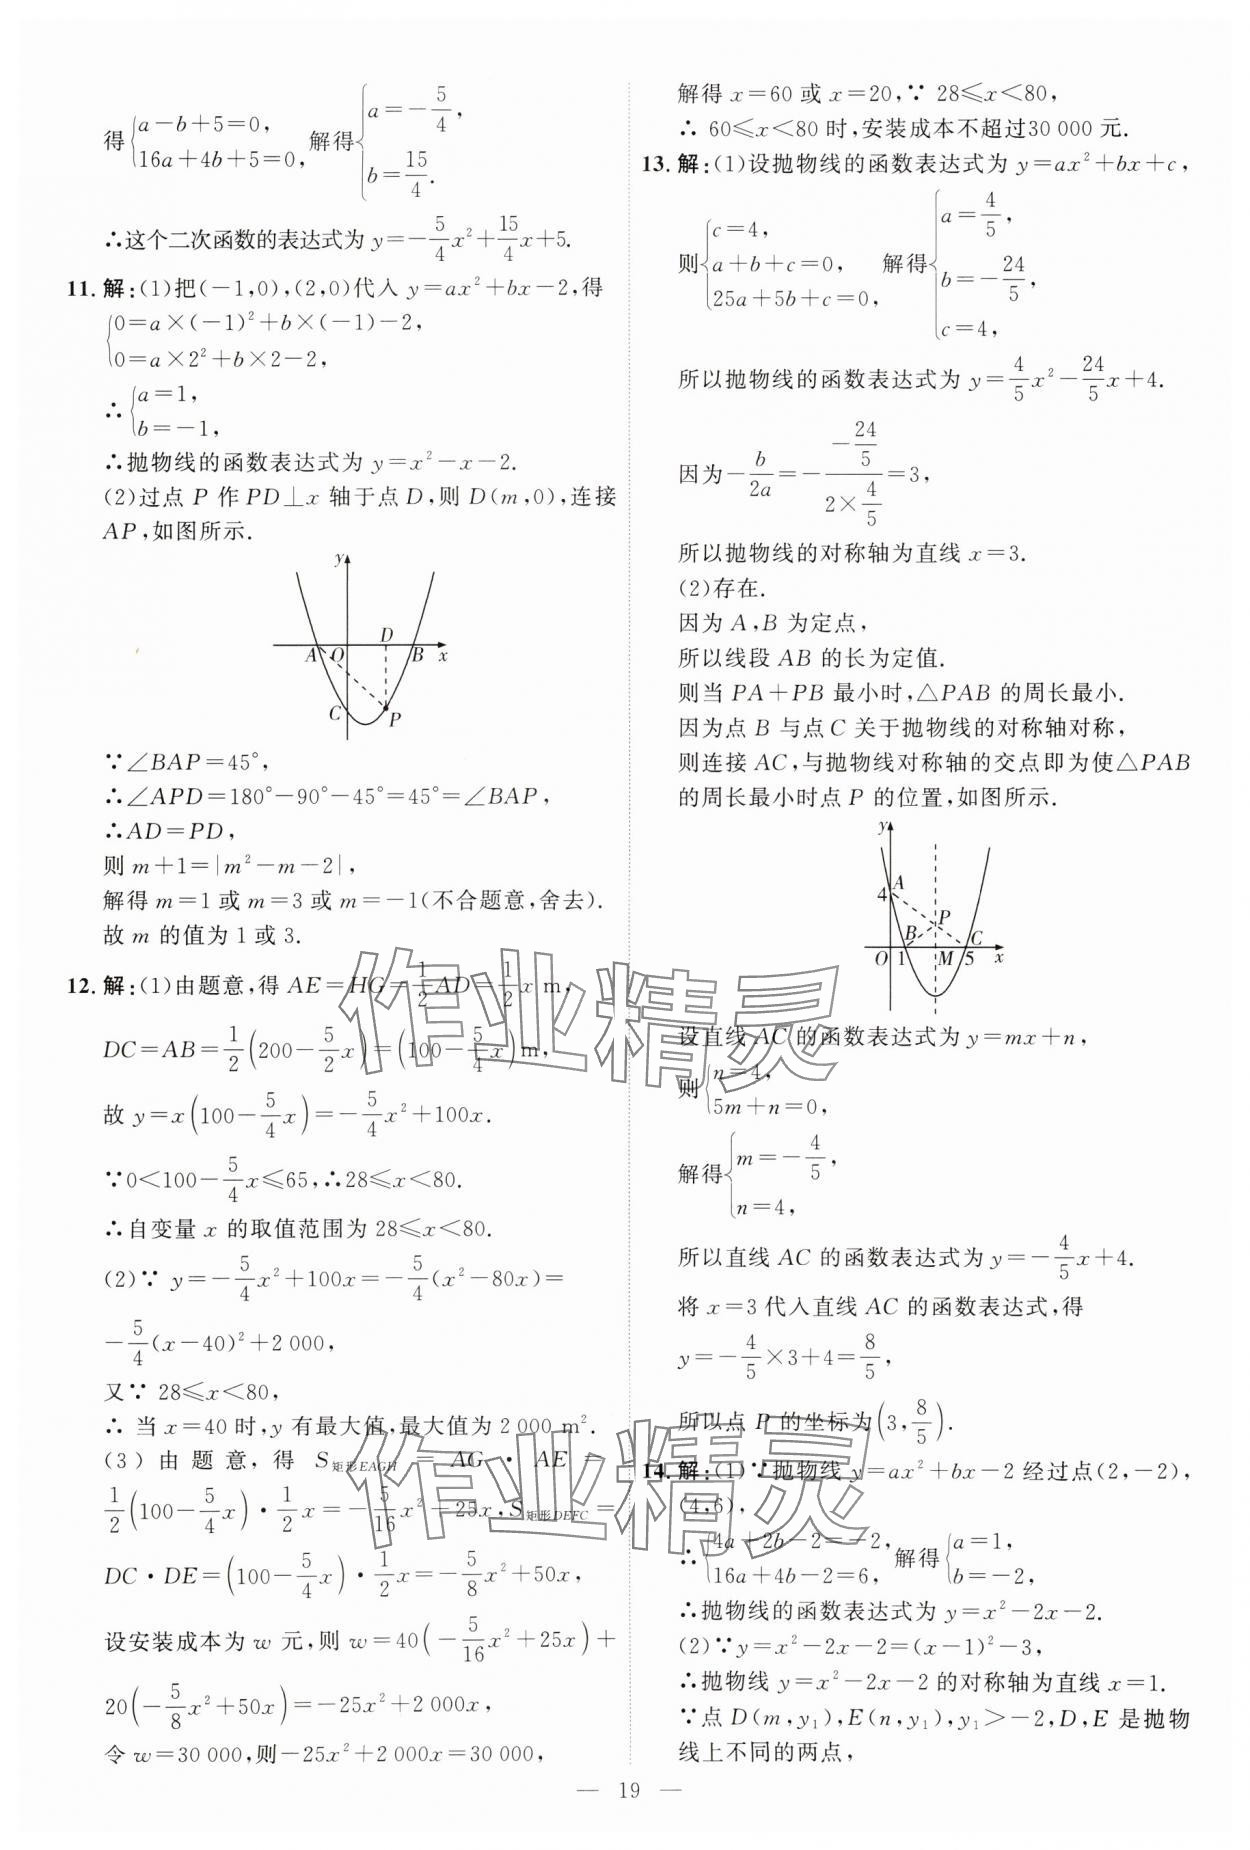 得{a-b+5=0, 16a+4b+5=0, 解得{a=-5/4, b=15/4.
∴这个二次函数的表达式为 y=-5/4x²+15/4x+5.
11. 解:(1)把(-1,0),(2,0)代入 y=ax²+bx-2,得
{0=a×(-1)²+b×(-1)-2,
0=a×2²+b×2-2,
∴{a=1,
b=-1,
∴抛物线的函数表达式为 y=x²-x-2.
(2)过点 P 作 PD⊥x 轴于点 D,则 D(m,0),连接
AP,如图所示.
y
D
A O B x
C P
∵∠BAP=45°,
∴∠APD=180°-90°-45°=45°=∠BAP,
∴AD=PD,
则 m+1=|m²-m-2|,
解得 m=1 或 m=3 或 m=-1(不合题意,舍去).
故 m 的值为 1 或 3.
12. 解:(1)由题意,得 AE=HG=1/2AD=1/2x m,
DC=AB=1/2(200-5/2x)=(100-5/4x)m,
故 y=x(100-5/4x)=-5/4x²+100x.
∵0<100-5/4x≤65,∴28≤x<80.
∴自变量 x 的取值范围为 28≤x<80.
(2)∵ y=-5/4x²+100x=-5/4(x²-80x)=
-5/4(x-40)²+2 000,
又∵ 28≤x<80,
∴ 当 x=40 时,y 有最大值,最大值为 2 000 m².
(3)由题意,得 S矩形EAGH = AG · AE =
1/2(100-5/4x)·1/2x=-5/16x²+25x,S矩形DEFC=
DC·DE=(100-5/4x)·1/2x=-5/8x²+50x,
设安装成本为 w 元,则 w=40(-5/16x²+25x)+
20(-5/8x²+50x)=-25x²+2 000x,
令 w=30 000,则-25x²+2 000x=30 000,
解得 x=60 或 x=20,∵ 28≤x<80,
∴ 60≤x<80 时,安装成本不超过30 000 元.
13. 解:(1)设抛物线的函数表达式为 y=ax²+bx+c,
则{c=4, a+b+c=0, 25a+5b+c=0, 解得{a=4/5, b=-24/5, c=4,
所以抛物线的函数表达式为 y=4/5x²-24/5x+4.
因为-b/2a=-(-24/5)/(2×4/5)=3,
所以抛物线的对称轴为直线 x=3.
(2)存在.
因为 A,B 为定点,
所以线段 AB 的长为定值.
则当 PA+PB 最小时,△PAB 的周长最小.
因为点 B 与点 C 关于抛物线的对称轴对称,
则连接 AC,与抛物线对称轴的交点即为使△PAB
的周长最小时点 P 的位置,如图所示.
y
4 A
B P C
O 1 M 5 x
设直线 AC 的函数表达式为 y=mx+n,
则{n=4,
5m+n=0,
解得{m=-4/5,
n=4,
所以直线 AC 的函数表达式为 y=-4/5x+4.
将 x=3 代入直线 AC 的函数表达式,得
y=-4/5×3+4=8/5,
所以点 P 的坐标为(3,8/5).
14. 解:(1)∵抛物线 y=ax²+bx-2 经过点(2,-2),
(4,6),
∴{4a+2b-2=-2, 16a+4b-2=6, 解得{a=1, b=-2,
∴抛物线的函数表达式为 y=x²-2x-2.
(2)∵y=x²-2x-2=(x-1)²-3,
∴抛物线 y=x²-2x-2 的对称轴为直线 x=1.
∵点 D(m,y₁),E(n,y₁),y₁>-2,D,E 是抛物
线上不同的两点,
— 19 —
作业精灵
作业精灵